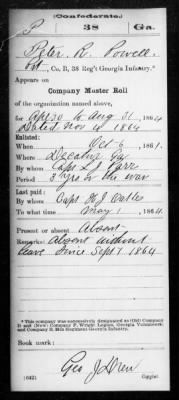 (Confederate.)
P 38 Ga.
Peter R. Powell
Pvt, Co. B, 38 Reg't Georgia Infantry.*
Appears on
Company Muster Roll
of the organization named above,
for Apl 30 to Aug 31, 1864.
dated Nov 4 1864
Enlisted:
When Oct 6, 186
Where Decatur Ga.
By whom Capt
Period 3 yrs or the war
Last paid:
By whom Capt H J
To what time May 1, 1864.
Present or absent Absent
Remarks: Absent without
leave since Sept 7 1864
*This company was successively designated as (Old) Company
D and (New) Company F, Wright Legion, Georgia Volunteers,
and Company B, 38th Regiment Georgia Infantry.
Book mark:
Geo J Drew
(642) Copyist.